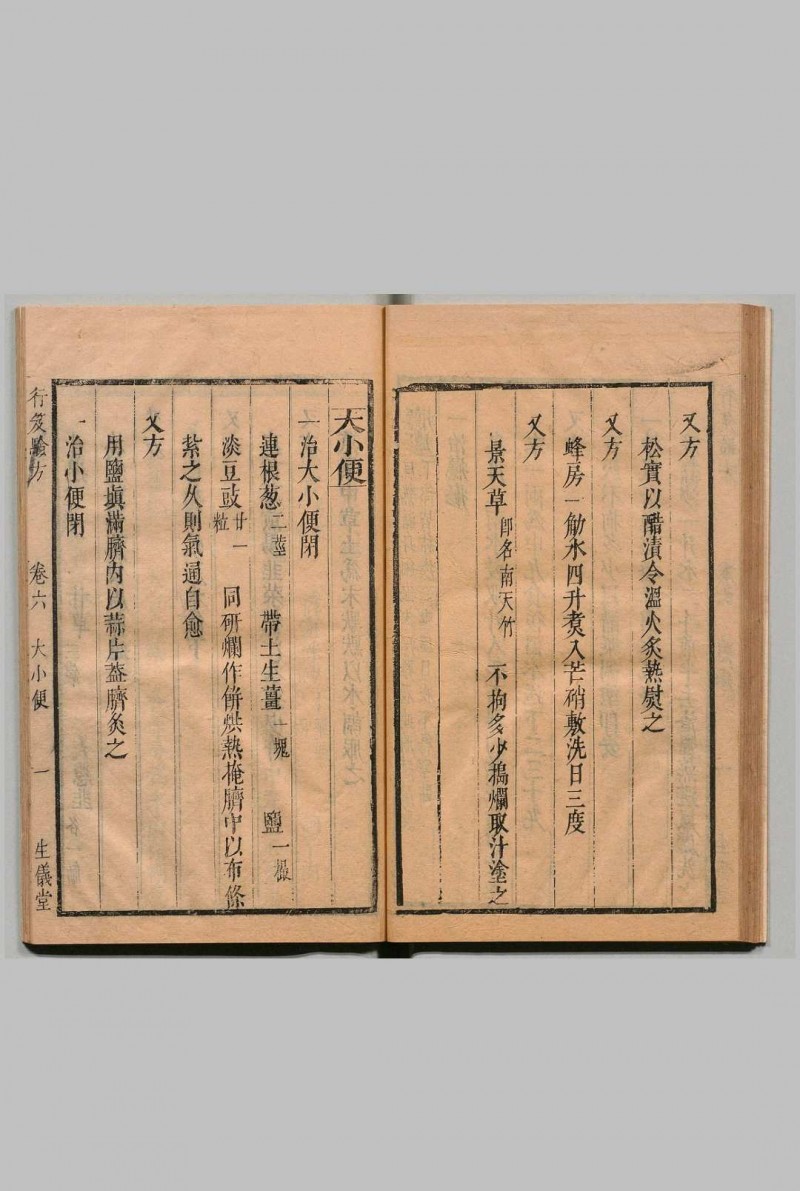 又方
松實以醋漬令溫火炙熱熨之
又方
蜂房一觔水四升煑入芒硝敷洗日三度
又方
景天草卽名南天竹 不拘多少搗爛取汁塗之
大小便
一治大小便閉
連根葱二莖 帶土生薑一塊 鹽一撮
淡豆豉廿一粒 同研爛作餅烘熱掩臍中以布條
紮之久則氣通自愈
又方
用鹽塡滿臍內以蒜片葢臍灸之
一治小便閉
行笈驗方 卷六 大小便 一 生儀堂